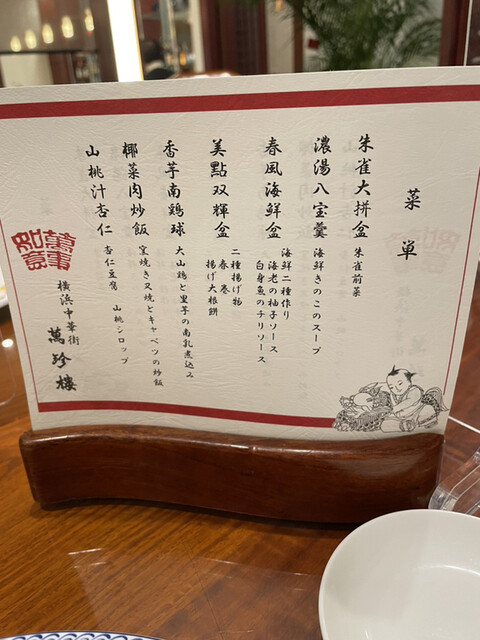 菜単
朱雀大拼盆 朱雀前菜
濃湯八宝羹 海鮮きのこのスープ
春風海鮮盆 海鮮二種作り
海老の柚子ソース
白身魚のチリソース
美點双輝盆 二種揚げ物
春巻
揚げ大根餅
香芋南鶏球 大山鶏と里芋の南乳煮込み
椰菜肉炒飯 窯焼き叉焼とキャベツの炒飯
山桃汁杏仁 杏仁豆腐 山桃シロップ
萬事如意
横浜中華街 萬珍樓